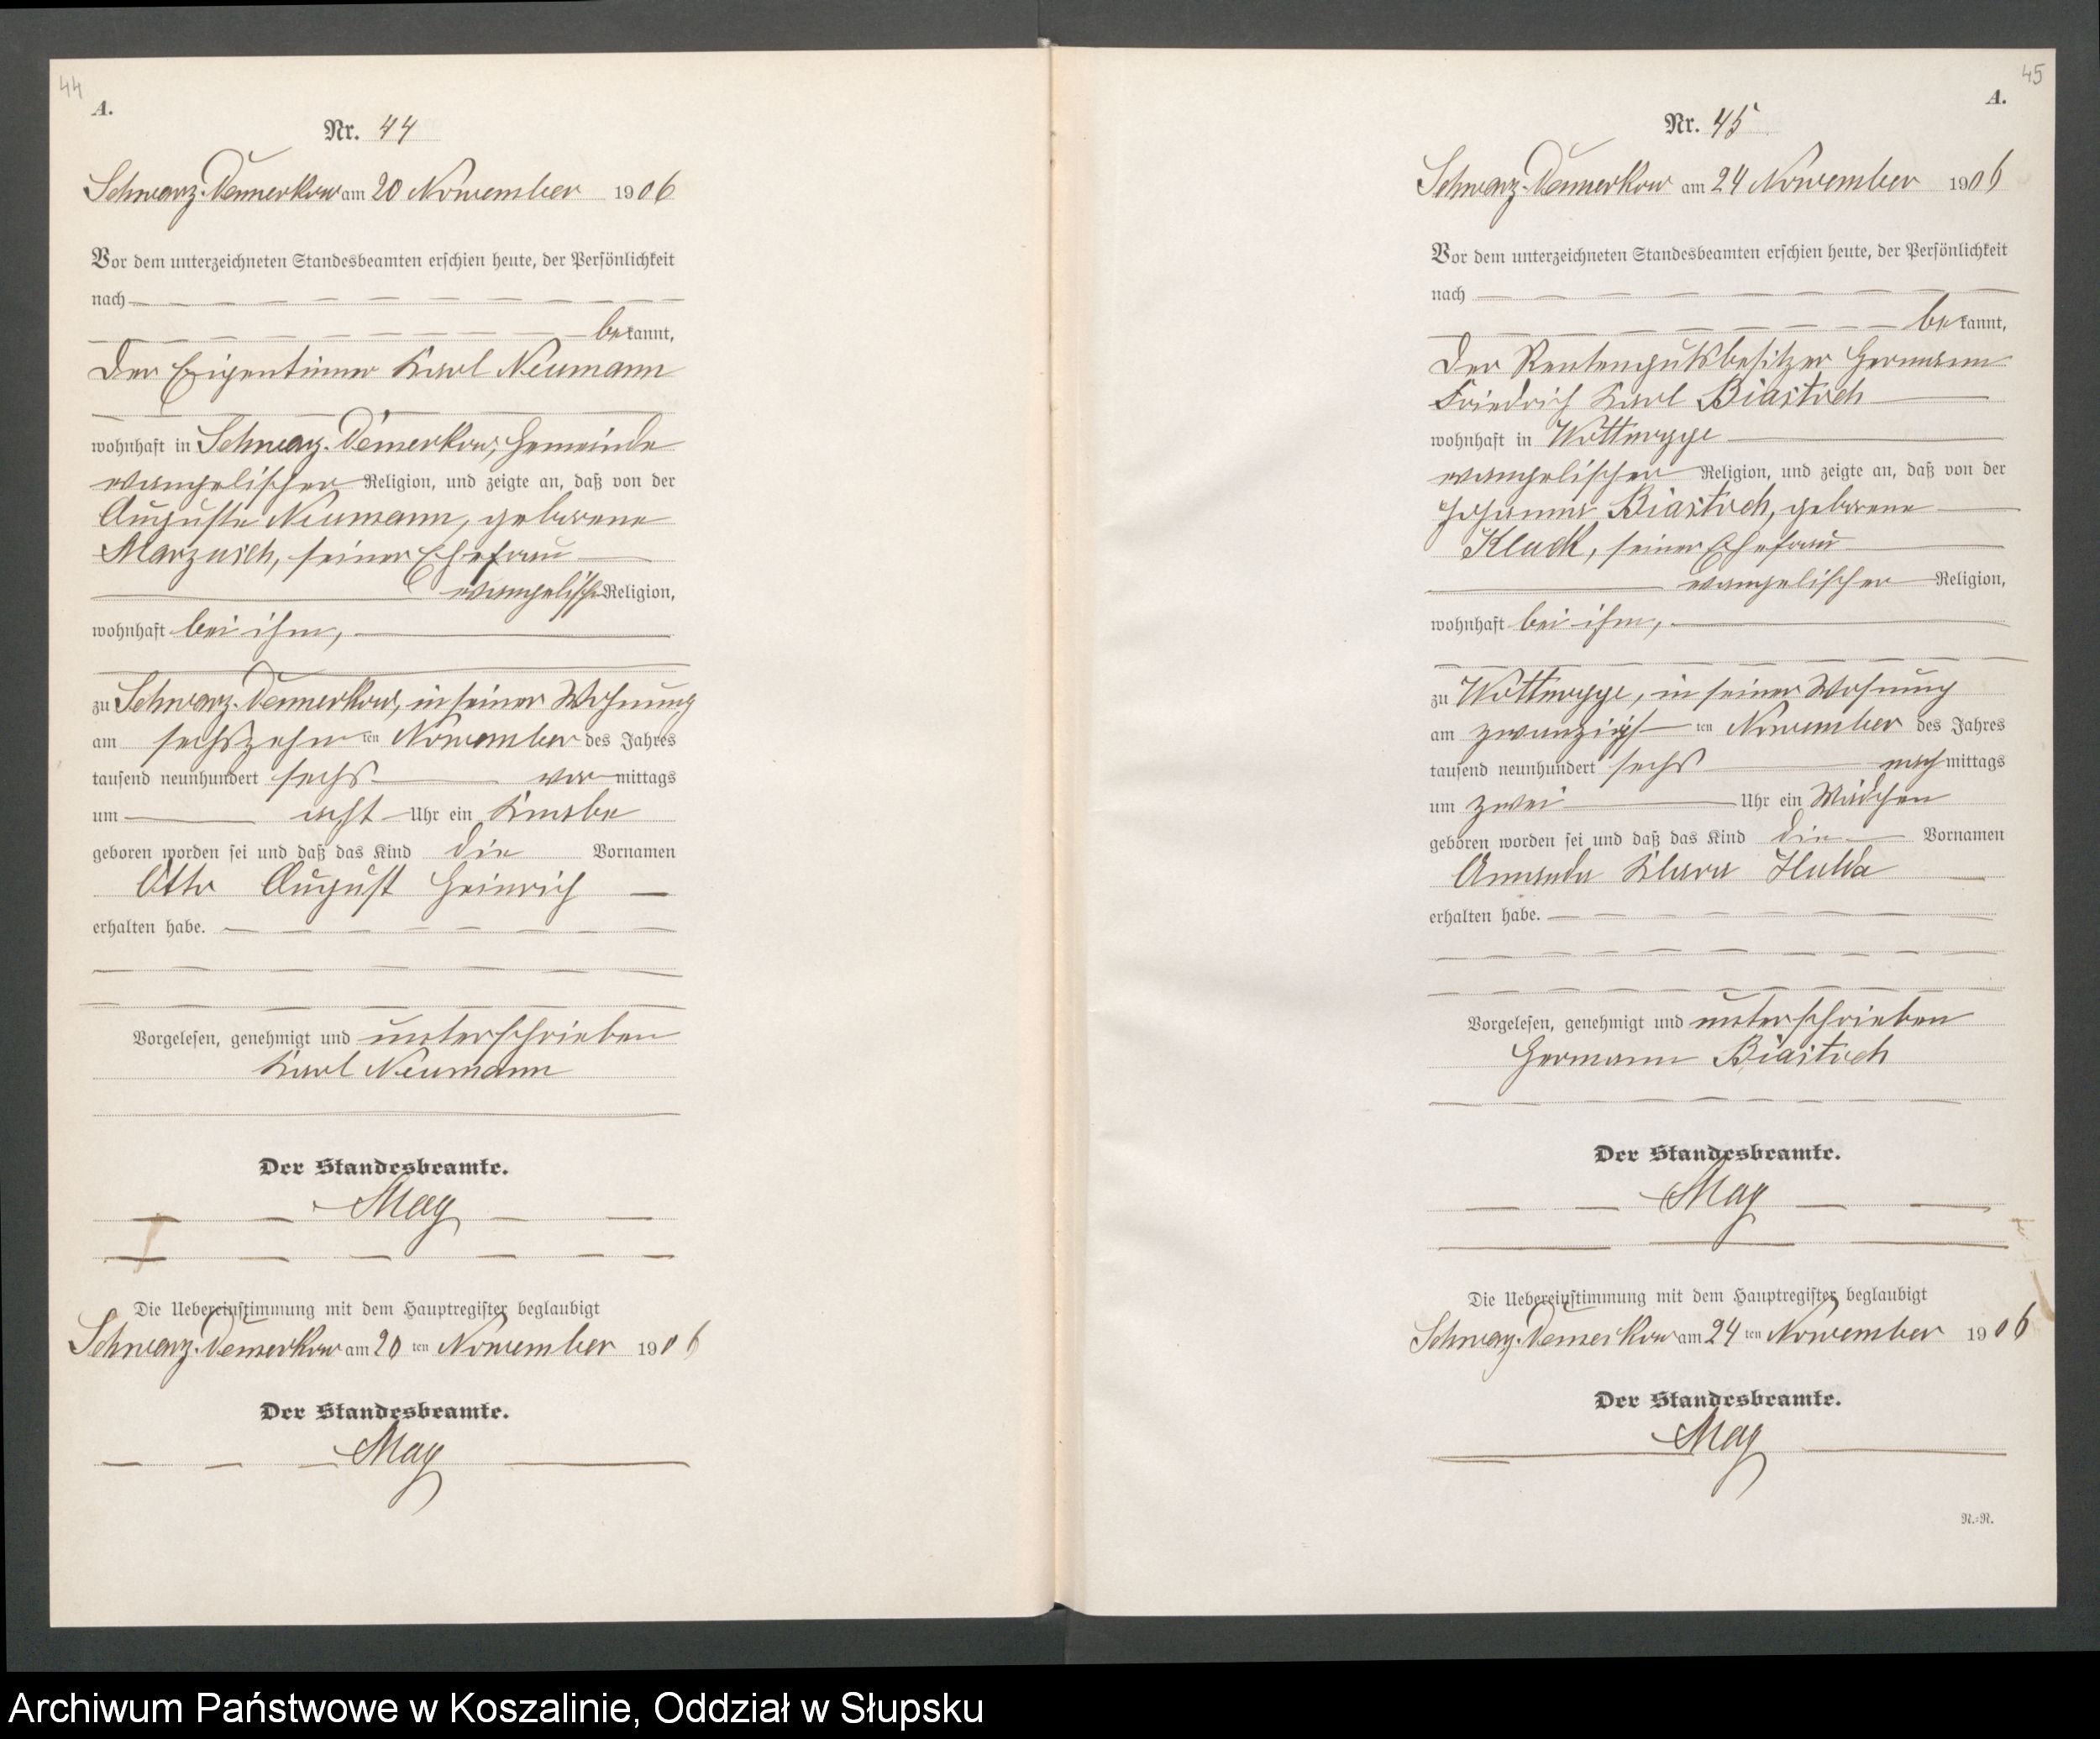 44
A.
Nr. 44
Schwarz-Damerkow am 20 November 1906
Vor dem unterzeichneten Standesbeamten erschien heute, der Persönlichkeit
nach
bekannt,
der Eigentümer Karl Neumann
wohnhaft in Schwarz-Damerkow, Gemeinde
evangelischer Religion, und zeigte an, daß von der
Auguste Neumann, geborene
Marzusch, seiner Ehefrau
evangelisch Religion,
wohnhaft bei ihm,
zu Schwarz-Damerkow, in seiner Wohnung
am sechszehnten November des Jahres
tausend neunhundert sechs vormittags
um acht Uhr ein Knabe
geboren worden sei und daß das Kind die Vornamen
Otto August Heinrich
erhalten habe.
Vorgelesen, genehmigt und unterschrieben
Karl Neumann
Der Standesbeamte.
May
Die Uebereinstimmung mit dem Hauptregister beglaubigt
Schwarz-Damerkow am 20ten November 1906
Der Standesbeamte.
May
45
A.
Nr. 45
Schwarz-Damerkow am 24 November 1906
Vor dem unterzeichneten Standesbeamten erschien heute, der Persönlichkeit
nach
bekannt,
der Rentengutsbesitzer Hermann
Friedrich Karl Biastoch
wohnhaft in Wottnogge
evangelischer Religion, und zeigte an, daß von der
Johanna Biastoch, geborene
Kluck, seiner Ehefrau
evangelischer Religion,
wohnhaft bei ihm,
zu Wottnogge, in seiner Wohnung
am zwanzigsten November des Jahres
tausend neunhundert sechs nachmittags
um zwei Uhr ein Mädchen
geboren worden sei und daß das Kind die Vornamen
Amanda Klara Hulda
erhalten habe.
Vorgelesen, genehmigt und unterschrieben
Hermann Biastoch
Der Standesbeamte.
May
Die Uebereinstimmung mit dem Hauptregister beglaubigt
Schwarz-Damerkow am 24ten November 1906
Der Standesbeamte.
May
N.=N.
Archiwum Państwowe w Koszalinie, Oddział w Słupsku